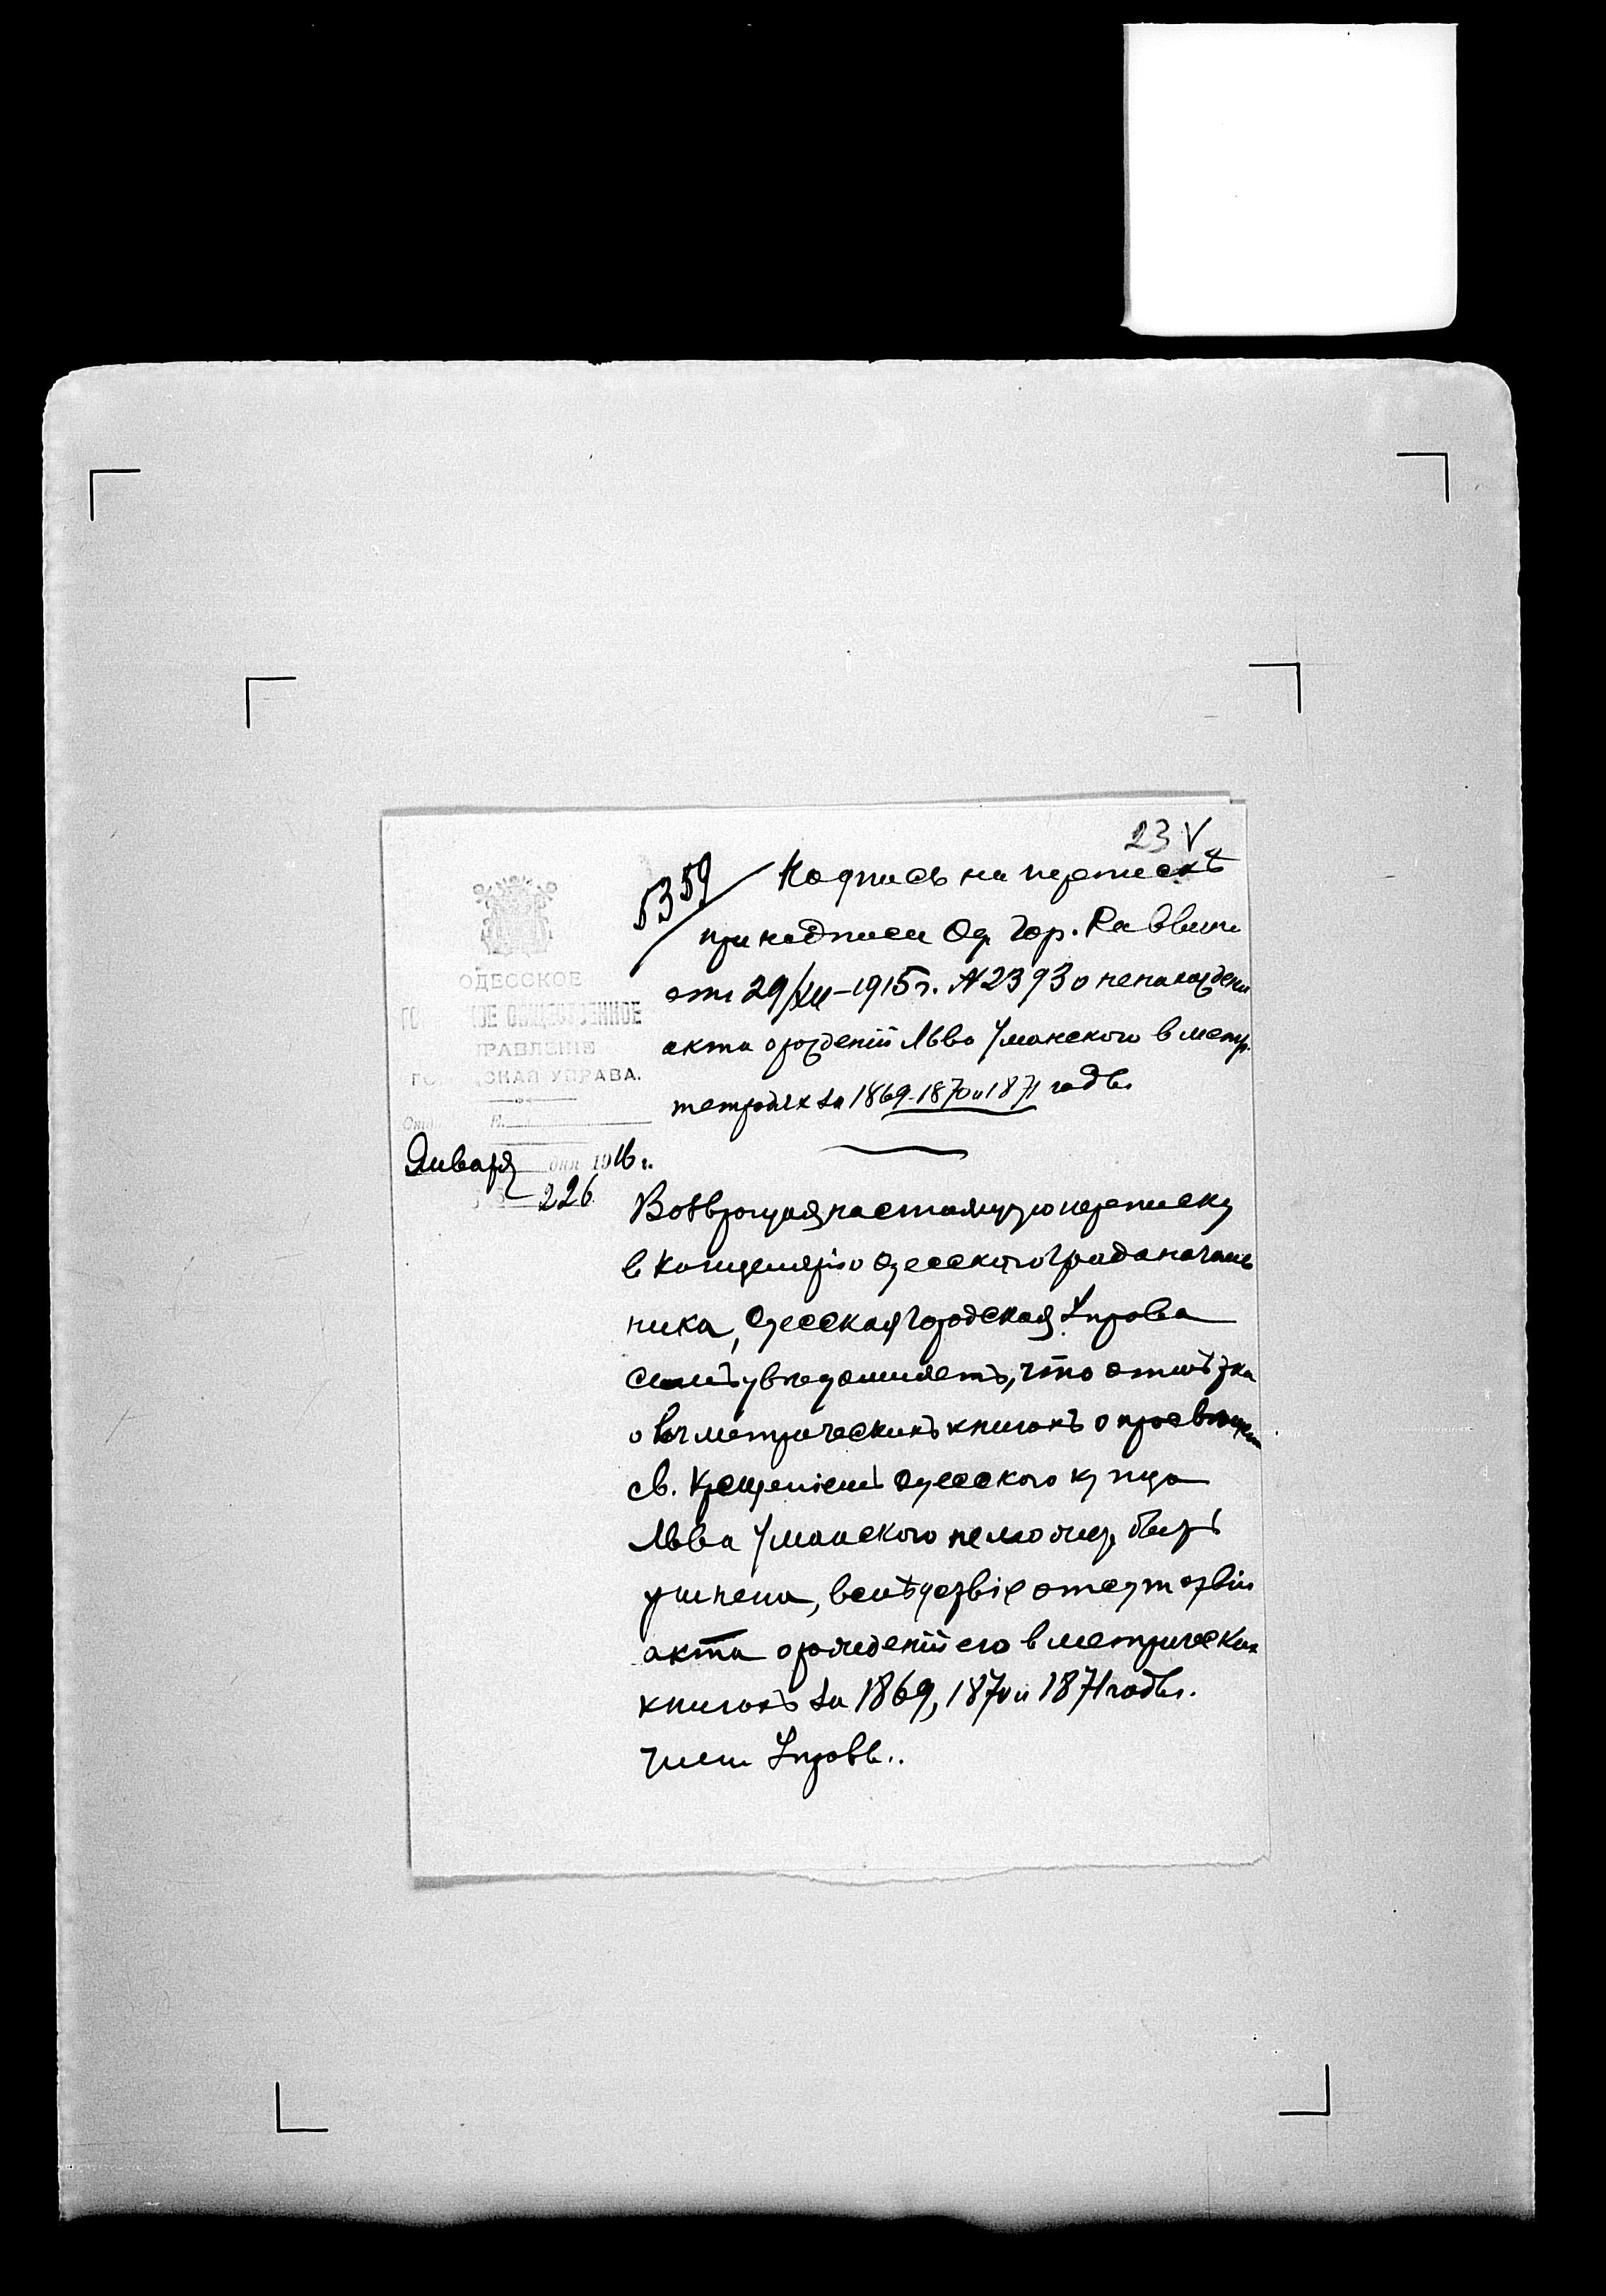 23 V
5359
Надпись на перепискѣ
при надписи Од. Гор. Раввина
отъ 29/XII–1915 г. № 2393 о ненахожденіи
акта о рожденіи Льва Уманского в метр.
тетрадях за 1869-1870 и 1871 годы
ОДЕССКОЕ
ОБЩЕСТВЕННОЕ
УПРАВЛЕНІЕ
ГОРОДСКАЯ УПРАВА.
Января дня 1916 г.
226
Возвращая настоящую переписку
в Канцелярію Одесского Градоначаль
ника, Одесская Городская Управа
симъ увѣдомляетъ, что отмѣтка
в метрическихъ книгахъ о просвѣщеніи
св. Крещеніемъ Одесского купца
Льва Уманского не можетъ быть
учинена, вслѣдствіе отсутствія
акта о рожденіи его в метрическихъ
книгахъ за 1869, 1870 и 1871 годы.
Член Управы.